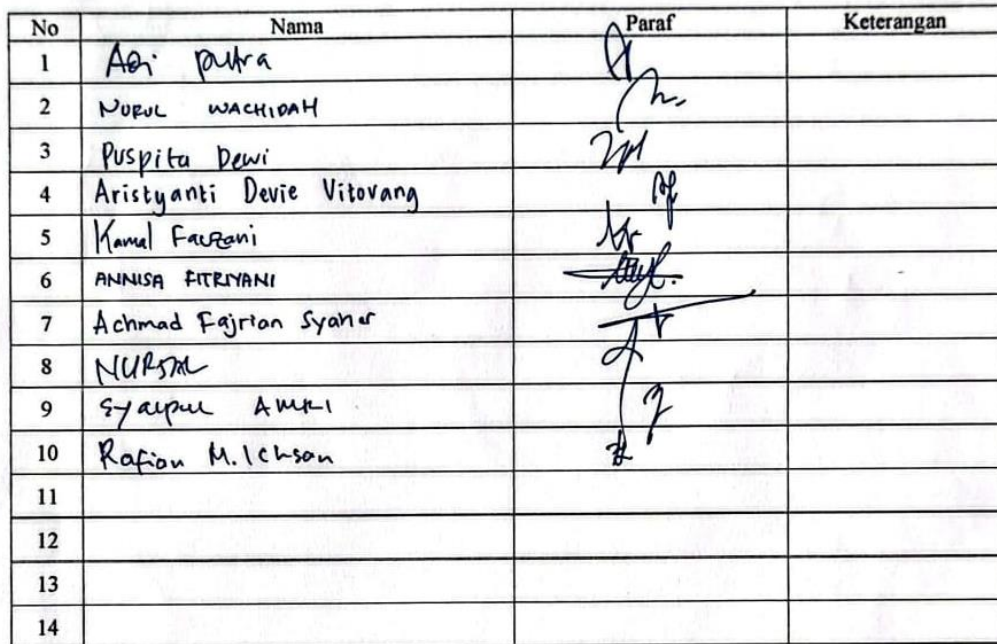 No Nama Paraf Keterangan
1 Adi Putra
2 NURUL WACHIDAH
3 Puspita Dewi
4 Aristyanti Devie Vitovang
5 Kamal Fauzani
6 ANNISA FITRIYANI
7 Achmad Fajrian
8 NURSAL
9 Syaipul AMRI
10 Rafian M. Ichsan
11
12
13
14